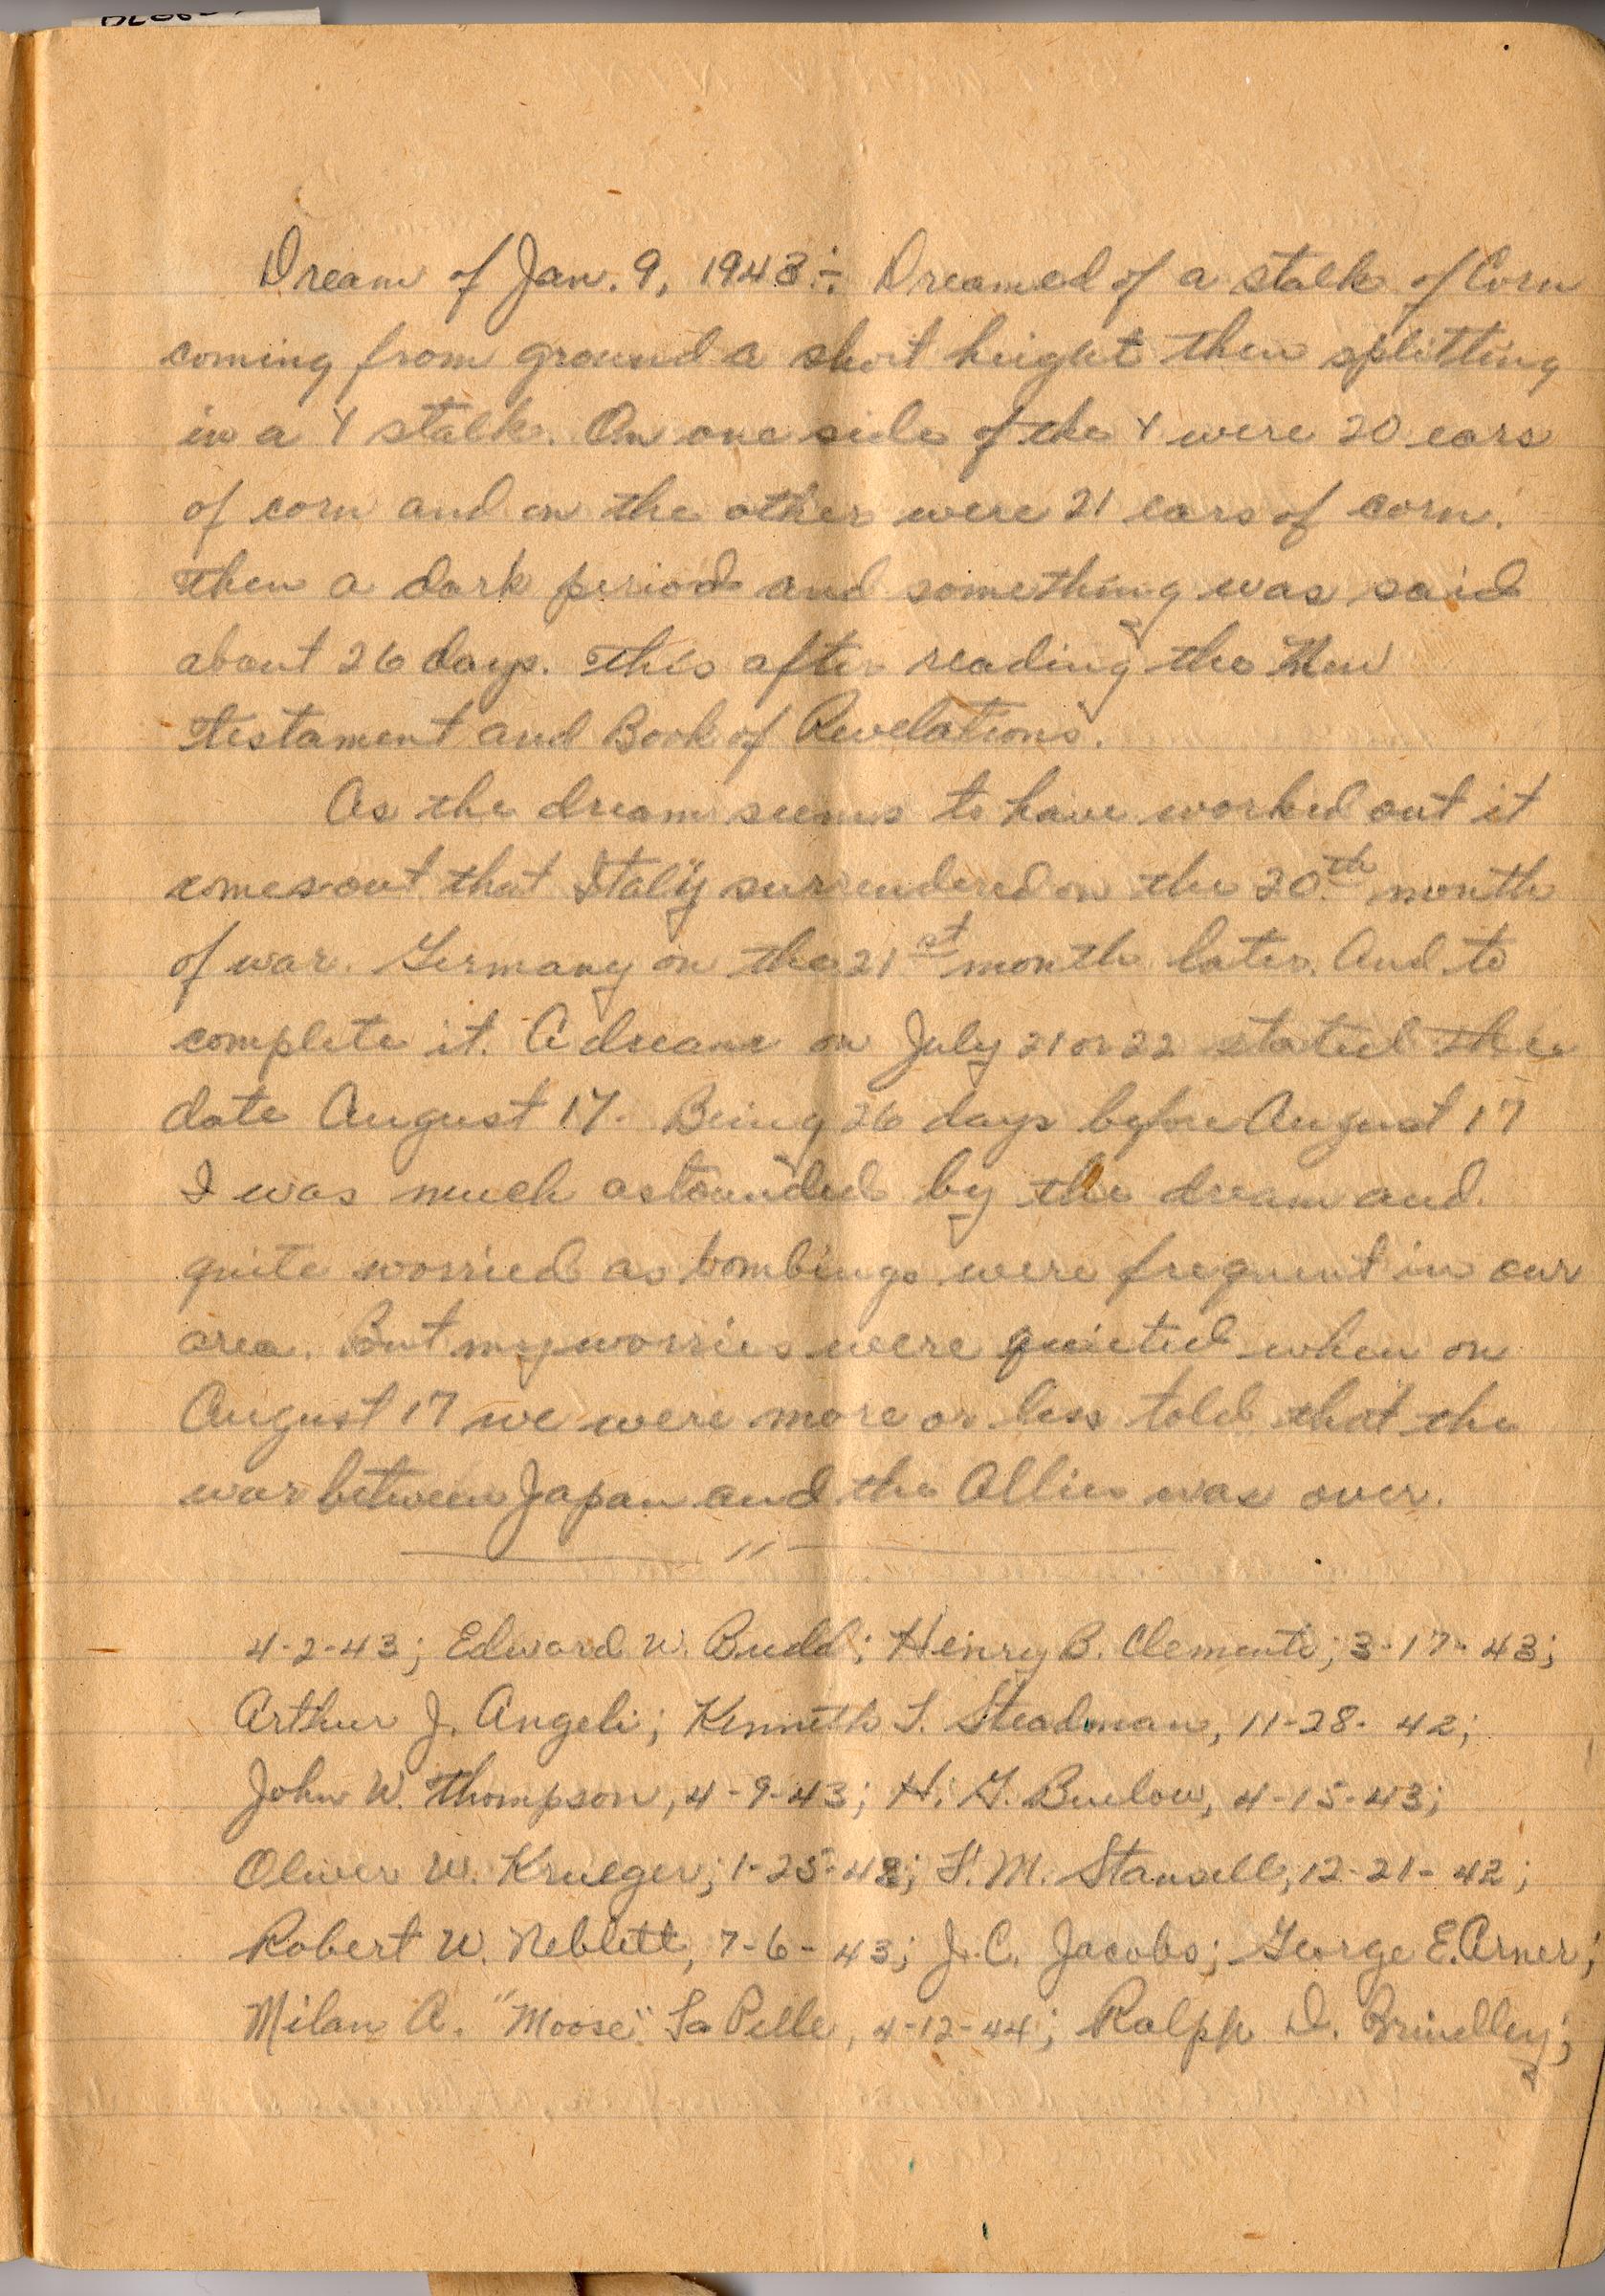 Dream of Jan. 9, 1943:- Dreamed of a stalk of Corn
coming from ground a short height then splitting
in a Y stalk. On one side of the Y were 20 ears
of corn and on the other were 21 ears of corn.
Then a dark period and something was said
about 26 days. This after reading the New
Testament and Book of Revelations.
As the dream seems to have worked out it
comes out that Italy surrendered on the 20th month
of war. Germany on the 21st month later. And to
complete it. A dream on July 21 or 22 stated the
date August 17. Being 26 days before August 17
I was much astounded by the dream and
quite worried as bombings were frequent in our
area. But my worries were quieted when on
August 17 we were more or less told that the
war between Japan and the Allies was over.
"
4-2-43; Edward W. Budd; Henry B. Clements; 3-17-43;
Arthur J. Angeli; Kenneth L. Steadman, 11-28-42;
John W. Thompson, 4-9-43; H. G. Buelow, 4-15-43;
Oliver W. Krueger; 1-25-43; F. M. Stansell, 12-21-42;
Robert W. Neblett, 7-6-43; J. C. Jacobs; George E. Arner;
Milan A. "Moose" La Pelle, 4-12-44; Ralph D. Brindley;